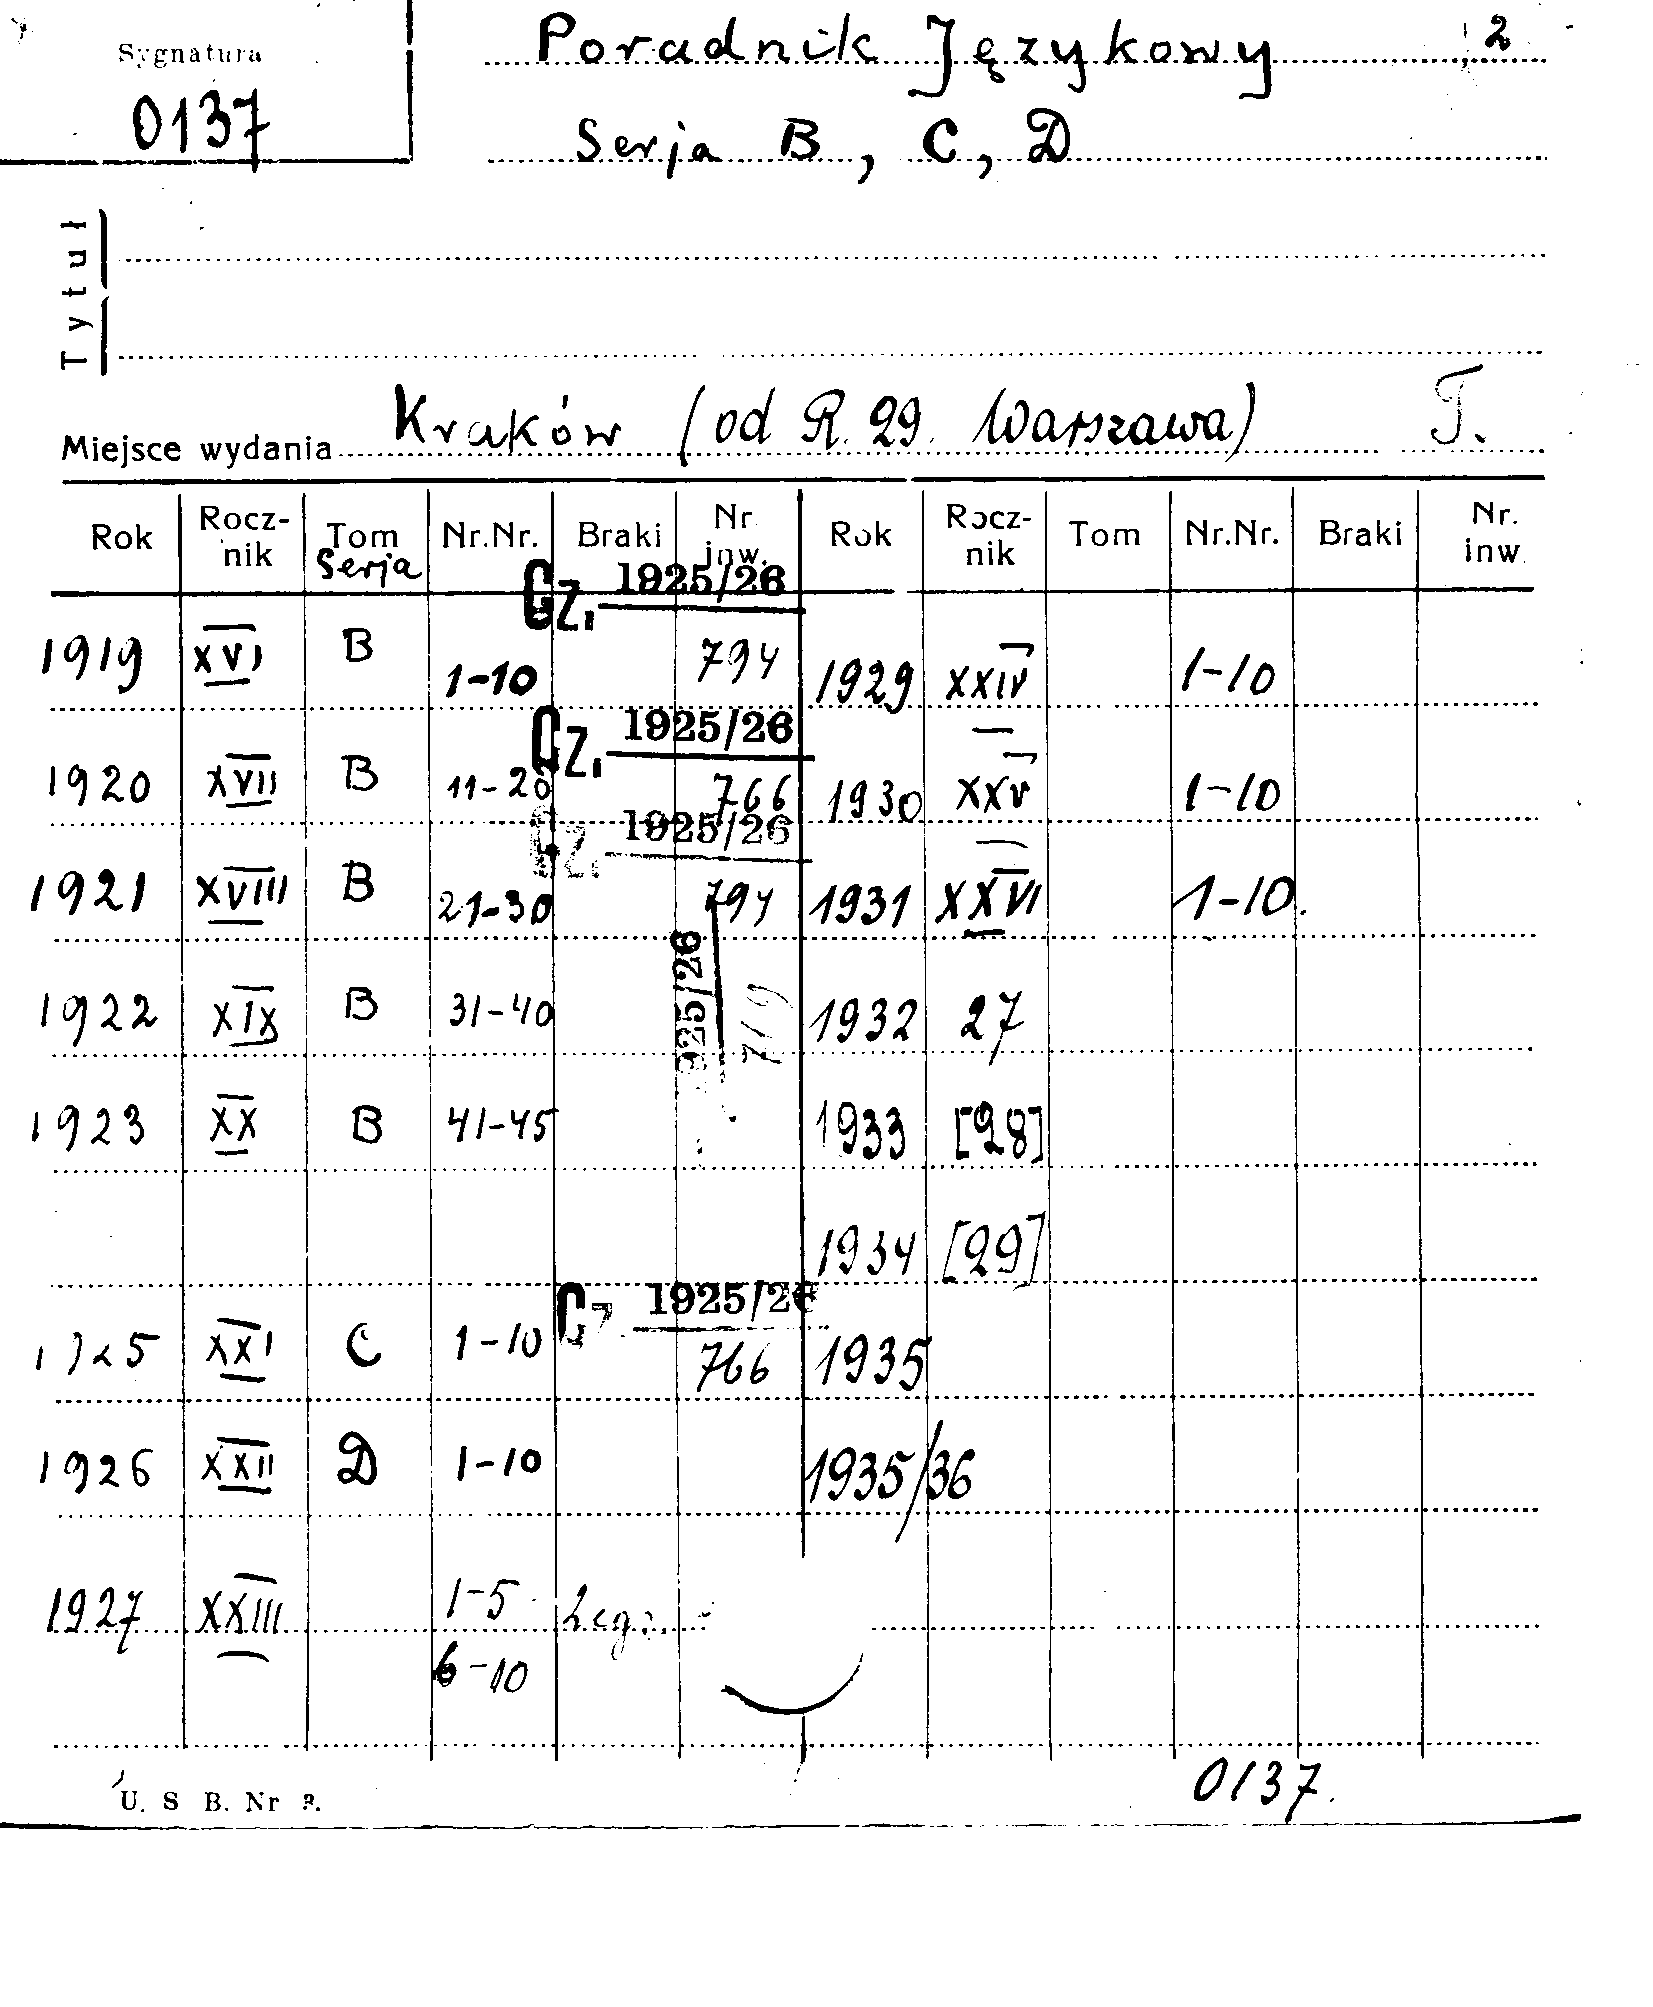 Sygnatura
0137
Poradnik Językowy 2
Serja B, C, D
Tytuł
Miejsce wydania Kraków (od R. 29. Warszawa) T.
Rok Rocz-nik Tom Serja Nr.Nr. Braki Nr inw. Rok Rocz-nik Tom Nr.Nr. Braki Nr. inw.
Cz. 1925/26
1919 XVI B 1-10 794 1929 XXIV 1-10
Cz. 1925/26
1920 XVII B 11-20 766 1930 XXV 1-10
Cz. 1925/26
1921 XVIII B 21-30 794 1931 XXVI 1-10.
925/26
719
1922 XIX B 31-40 1932 27
1923 XX B 41-45 1933 [28]
1934 [29]
Cz. 1925/26
1925 XXI C 1-10 766 1935
1926 XXII D 1-10 1935/36
1927 XXIII 1-5 2 egz.
6-10
0137.
U. S B. Nr